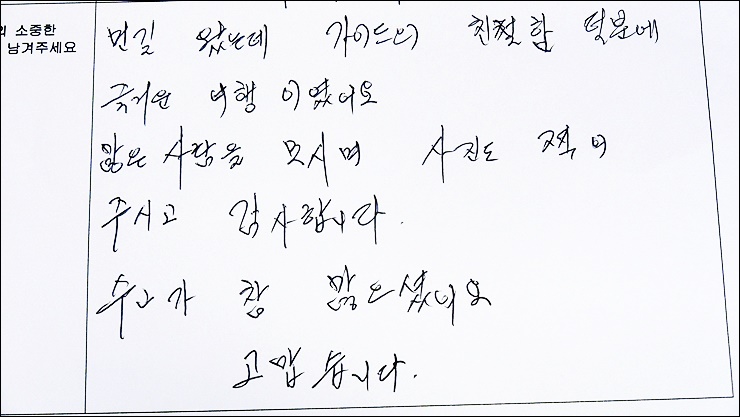 의 소중한
남겨주세요
먼길 왔는데 가이드의 친절함 덕분에
즉거운 여행 이였어요
많은 사람을 모시며 사진도 찍어
주시고 감사합니다.
수고가 참 많으셨어요
고맙습니다.